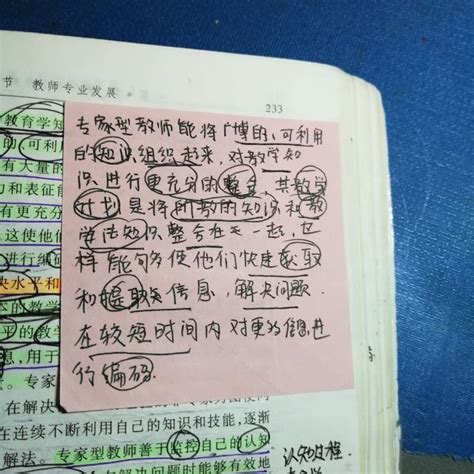 节 教师专业发展
233
专家型教师能将广博的、可利用
的知识组织起来，对教学知
识进行更充分的整合，其教学
计划是将所教的知识和教
学法知识整合在一起，这
样能够使他们快速获取
和提取信息，解决问题
在较短时间内对更为信息进
行编码。
教育学知
可利用
有大量的
力和表征能
有更充分
这使他们
进行编码
决水平和
本的教学
平的教学
息，用于
法。专家型
在解决
在连续不断利用自己的知识和技能，逐渐
法。专家型教师善于监控自己的认知
解决问题时能够有效地
认知过程